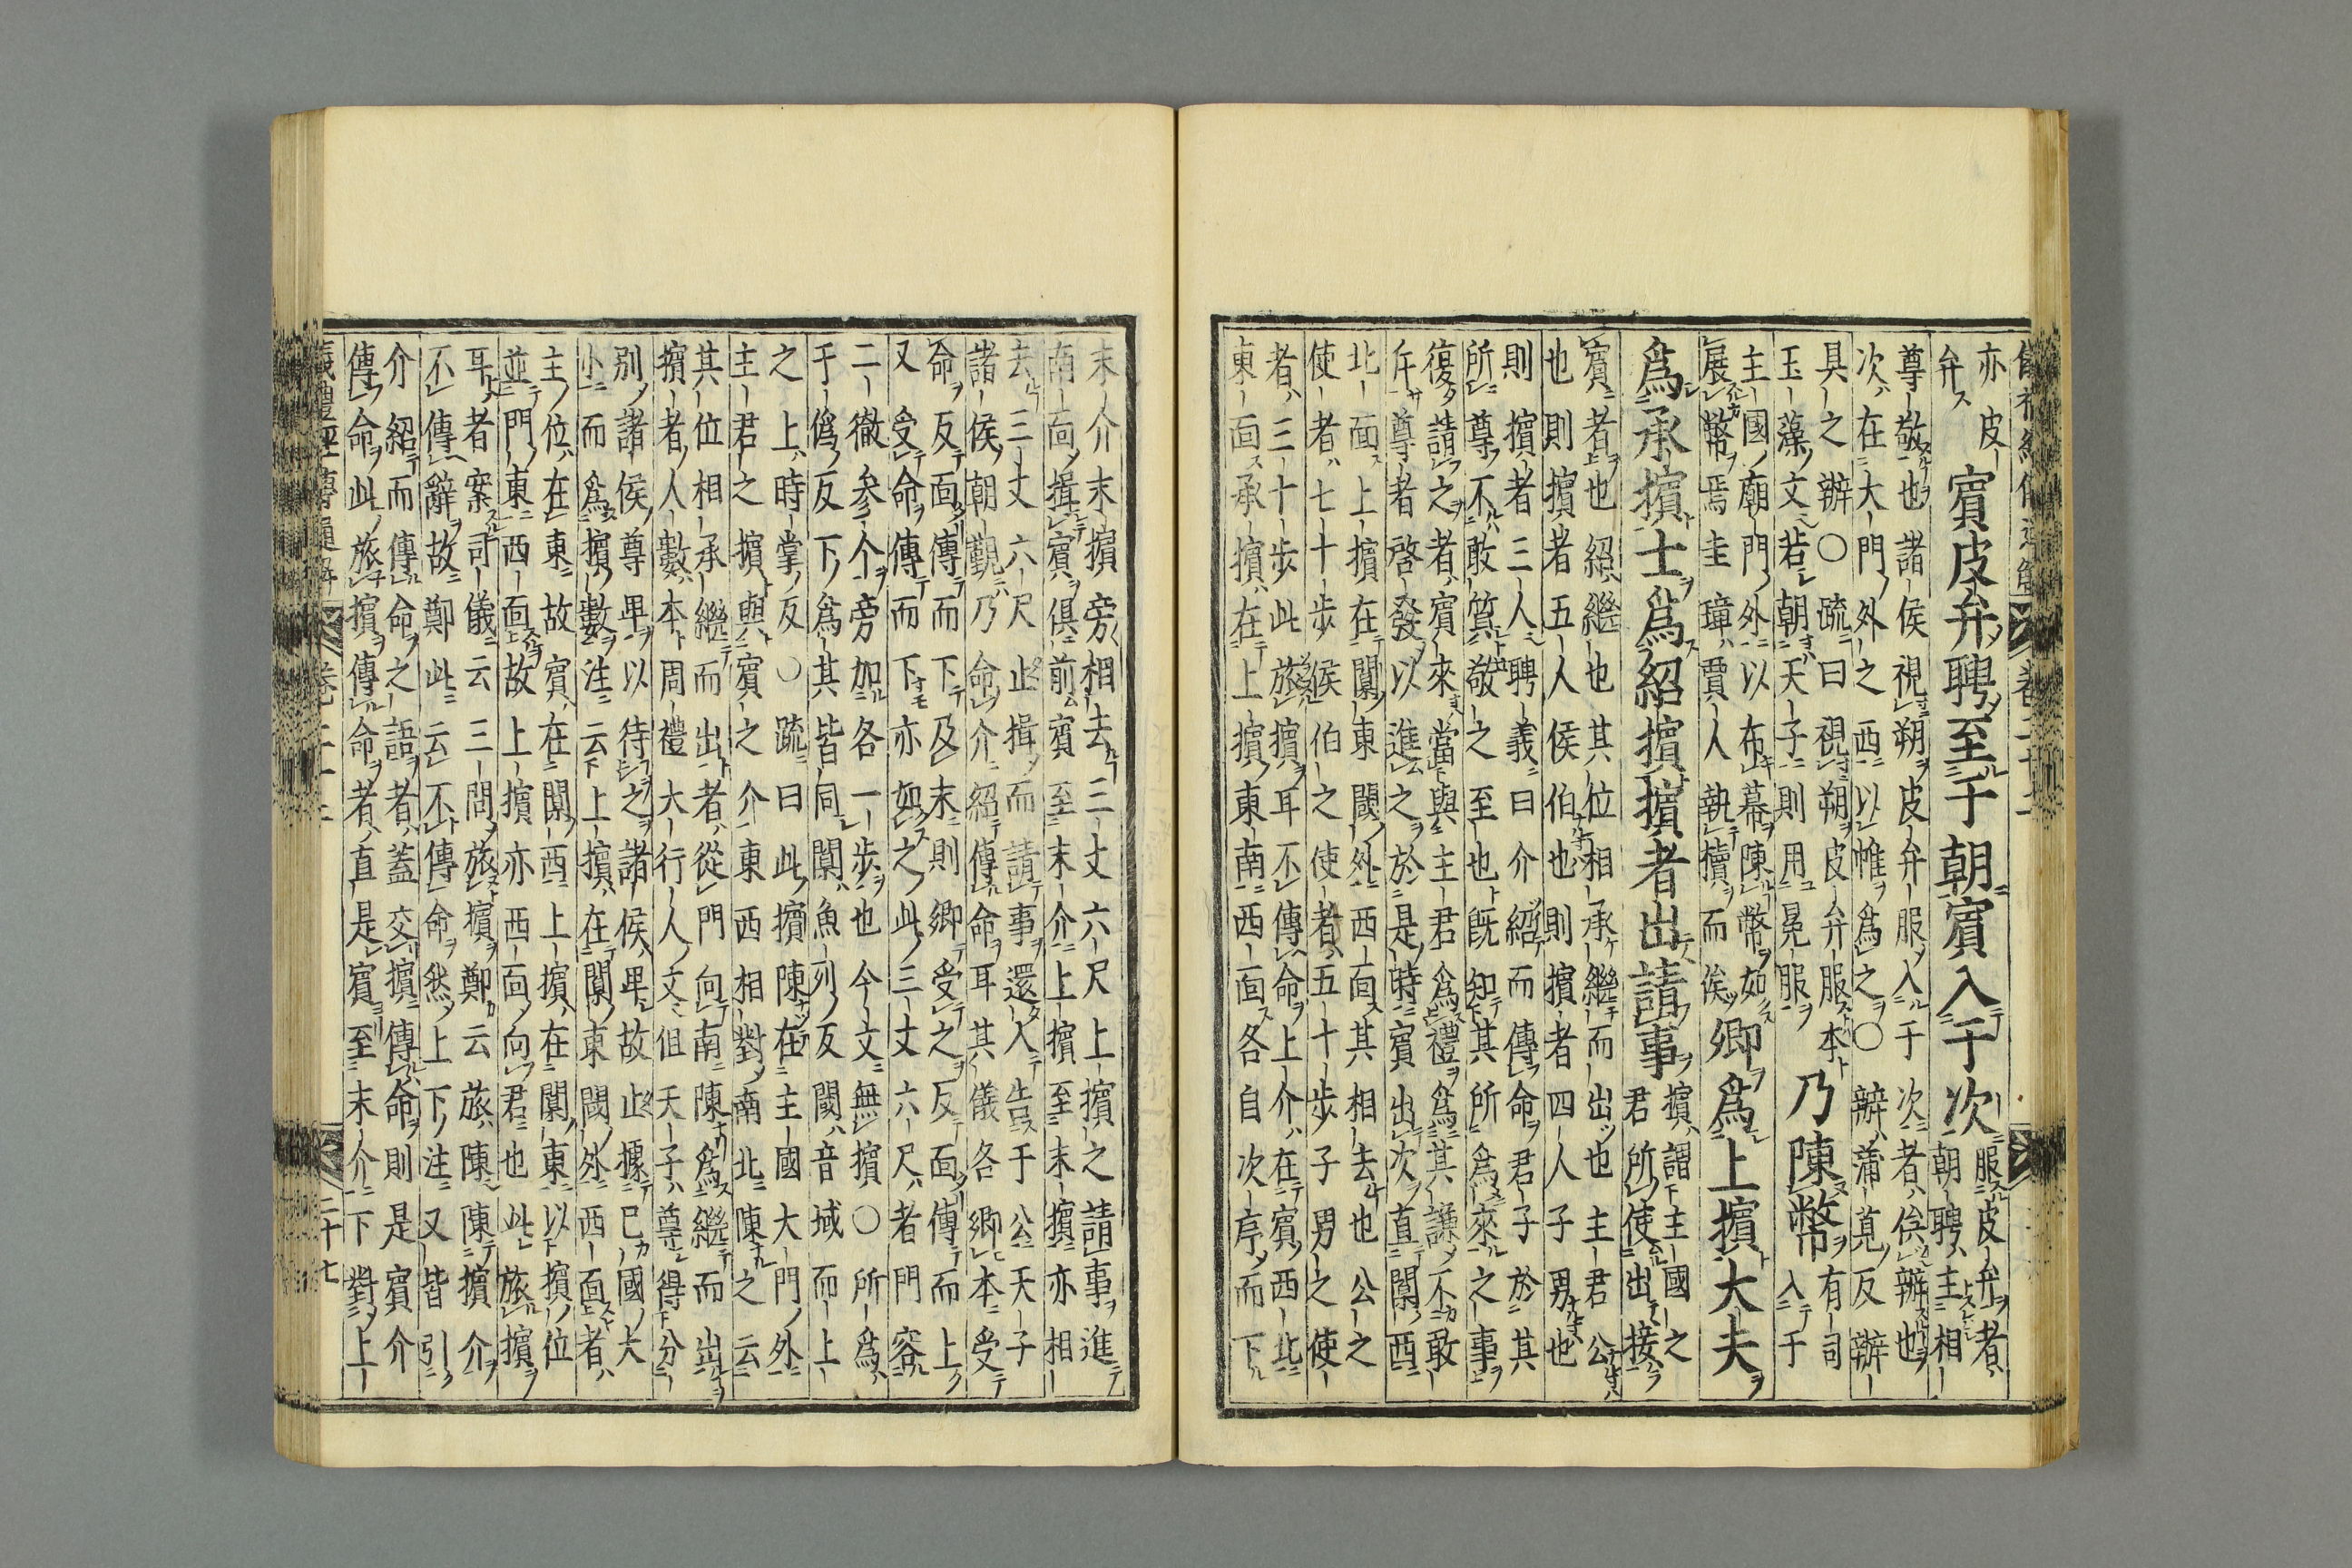 亦皮
弁
賓皮弁聘至于朝賓入于次
服皮弁者
朝聘主相
尊敬也諸侯視朔皮弁服入于次者俟辦也
次在大門外之西以帷爲之○辦蒲莧反辦
具之辦○疏曰視朔皮弁服本
玉藻文若朝天子則用冕服
乃陳幣
有司
入于
主國廟門外以布幕陳幣如
展幣焉圭璋賈人執櫝而俟
卿爲上擯大夫
爲承擯士爲紹擯擯者出請事
擯謂主國之
君所使出接
賓者也紹繼也其位相承繼而出也主君公
也則擯者五人侯伯也則擯者四人子男也
則擯者三人聘義曰介紹而傳命君子於其
所尊不敢質敬之至也既知其所爲來之事
復請之者賓來當與主君爲禮爲其謙不敢
斥尊者啓發以進之於是時賓出次直闑西
北面上擯在闑東閾外西面其相去也公之
使者七十步侯伯之使者五十步子男之使
者三十步此旅擯耳不傳命上介在賓西北
東面承擯在上擯東南西面各自次序而下
末介末擯旁相去三丈六尺上擯之請事進
南面揖賓俱前賓至末介上擯至末擯亦相
去三丈六尺止揖而請事還入告于公天子
諸侯朝覲乃命介紹傳命耳其儀各鄉本受
命反面傳而下及末則鄉受之反面傳而上
又受命傳而下亦如之此三丈六尺者門容
二徹參个旁加各一步也今文無擯○所爲
于僞反下爲其皆同闑魚列反閾音域而上
之上時掌反○疏曰此擯陳在主國大門外
主君之擯與賓之介東西相對南北陳之云
其位相承繼而出者從門向南陳爲繼而出
擯者人數本周禮大行人文但天子尊得分
別諸侯尊卑以待之諸侯卑故止據已國大
小而爲擯數注云上擯在闑東閾外西面者
主位在東故賓在闑西上擯在闑東以擯位
並門東西面故上擯亦西面向君也此旅擯
耳者案司儀云三問旅擯鄭云旅陳陳擯介
不傳辭故鄭此云不傳命然上下注又皆引
介紹而傳命之語者蓋交擯傳命則是賓介
傳命此旅擯傳命者直是賓至末介下對上
二十七